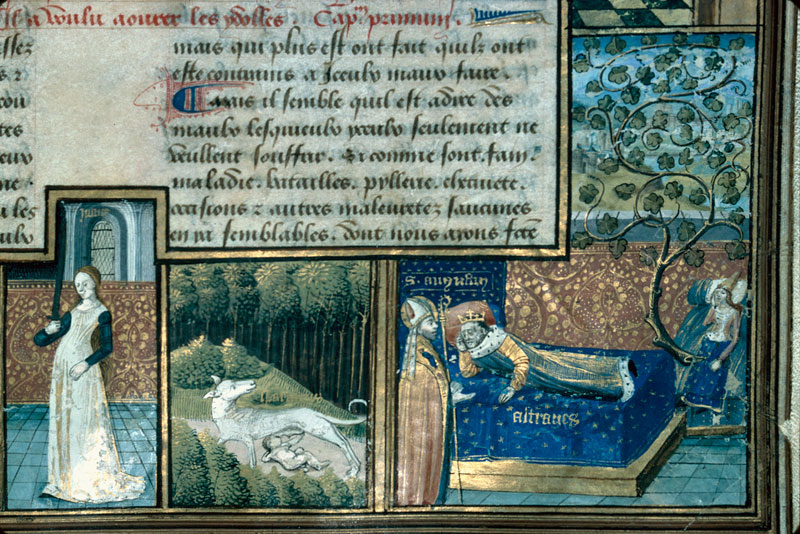 Il a voulu aourer les ydolles Capm primum.
ssez
s z
cou
tes
ceulx
ne.
a les
ulx
mais qui plus est ont fait quilz ont
este contrains a Iceulx maux faire.
Mais il semble quil est adire des
maulx lesquieulx yceulx seulement ne
veullent souffrir. Si comme sont. fam.
maladie. batailles. pyllerie. chetivete.
occisions z autres maleuretez saucunes
en ya semblables. dont nous avons fere
s. augustin
astrages